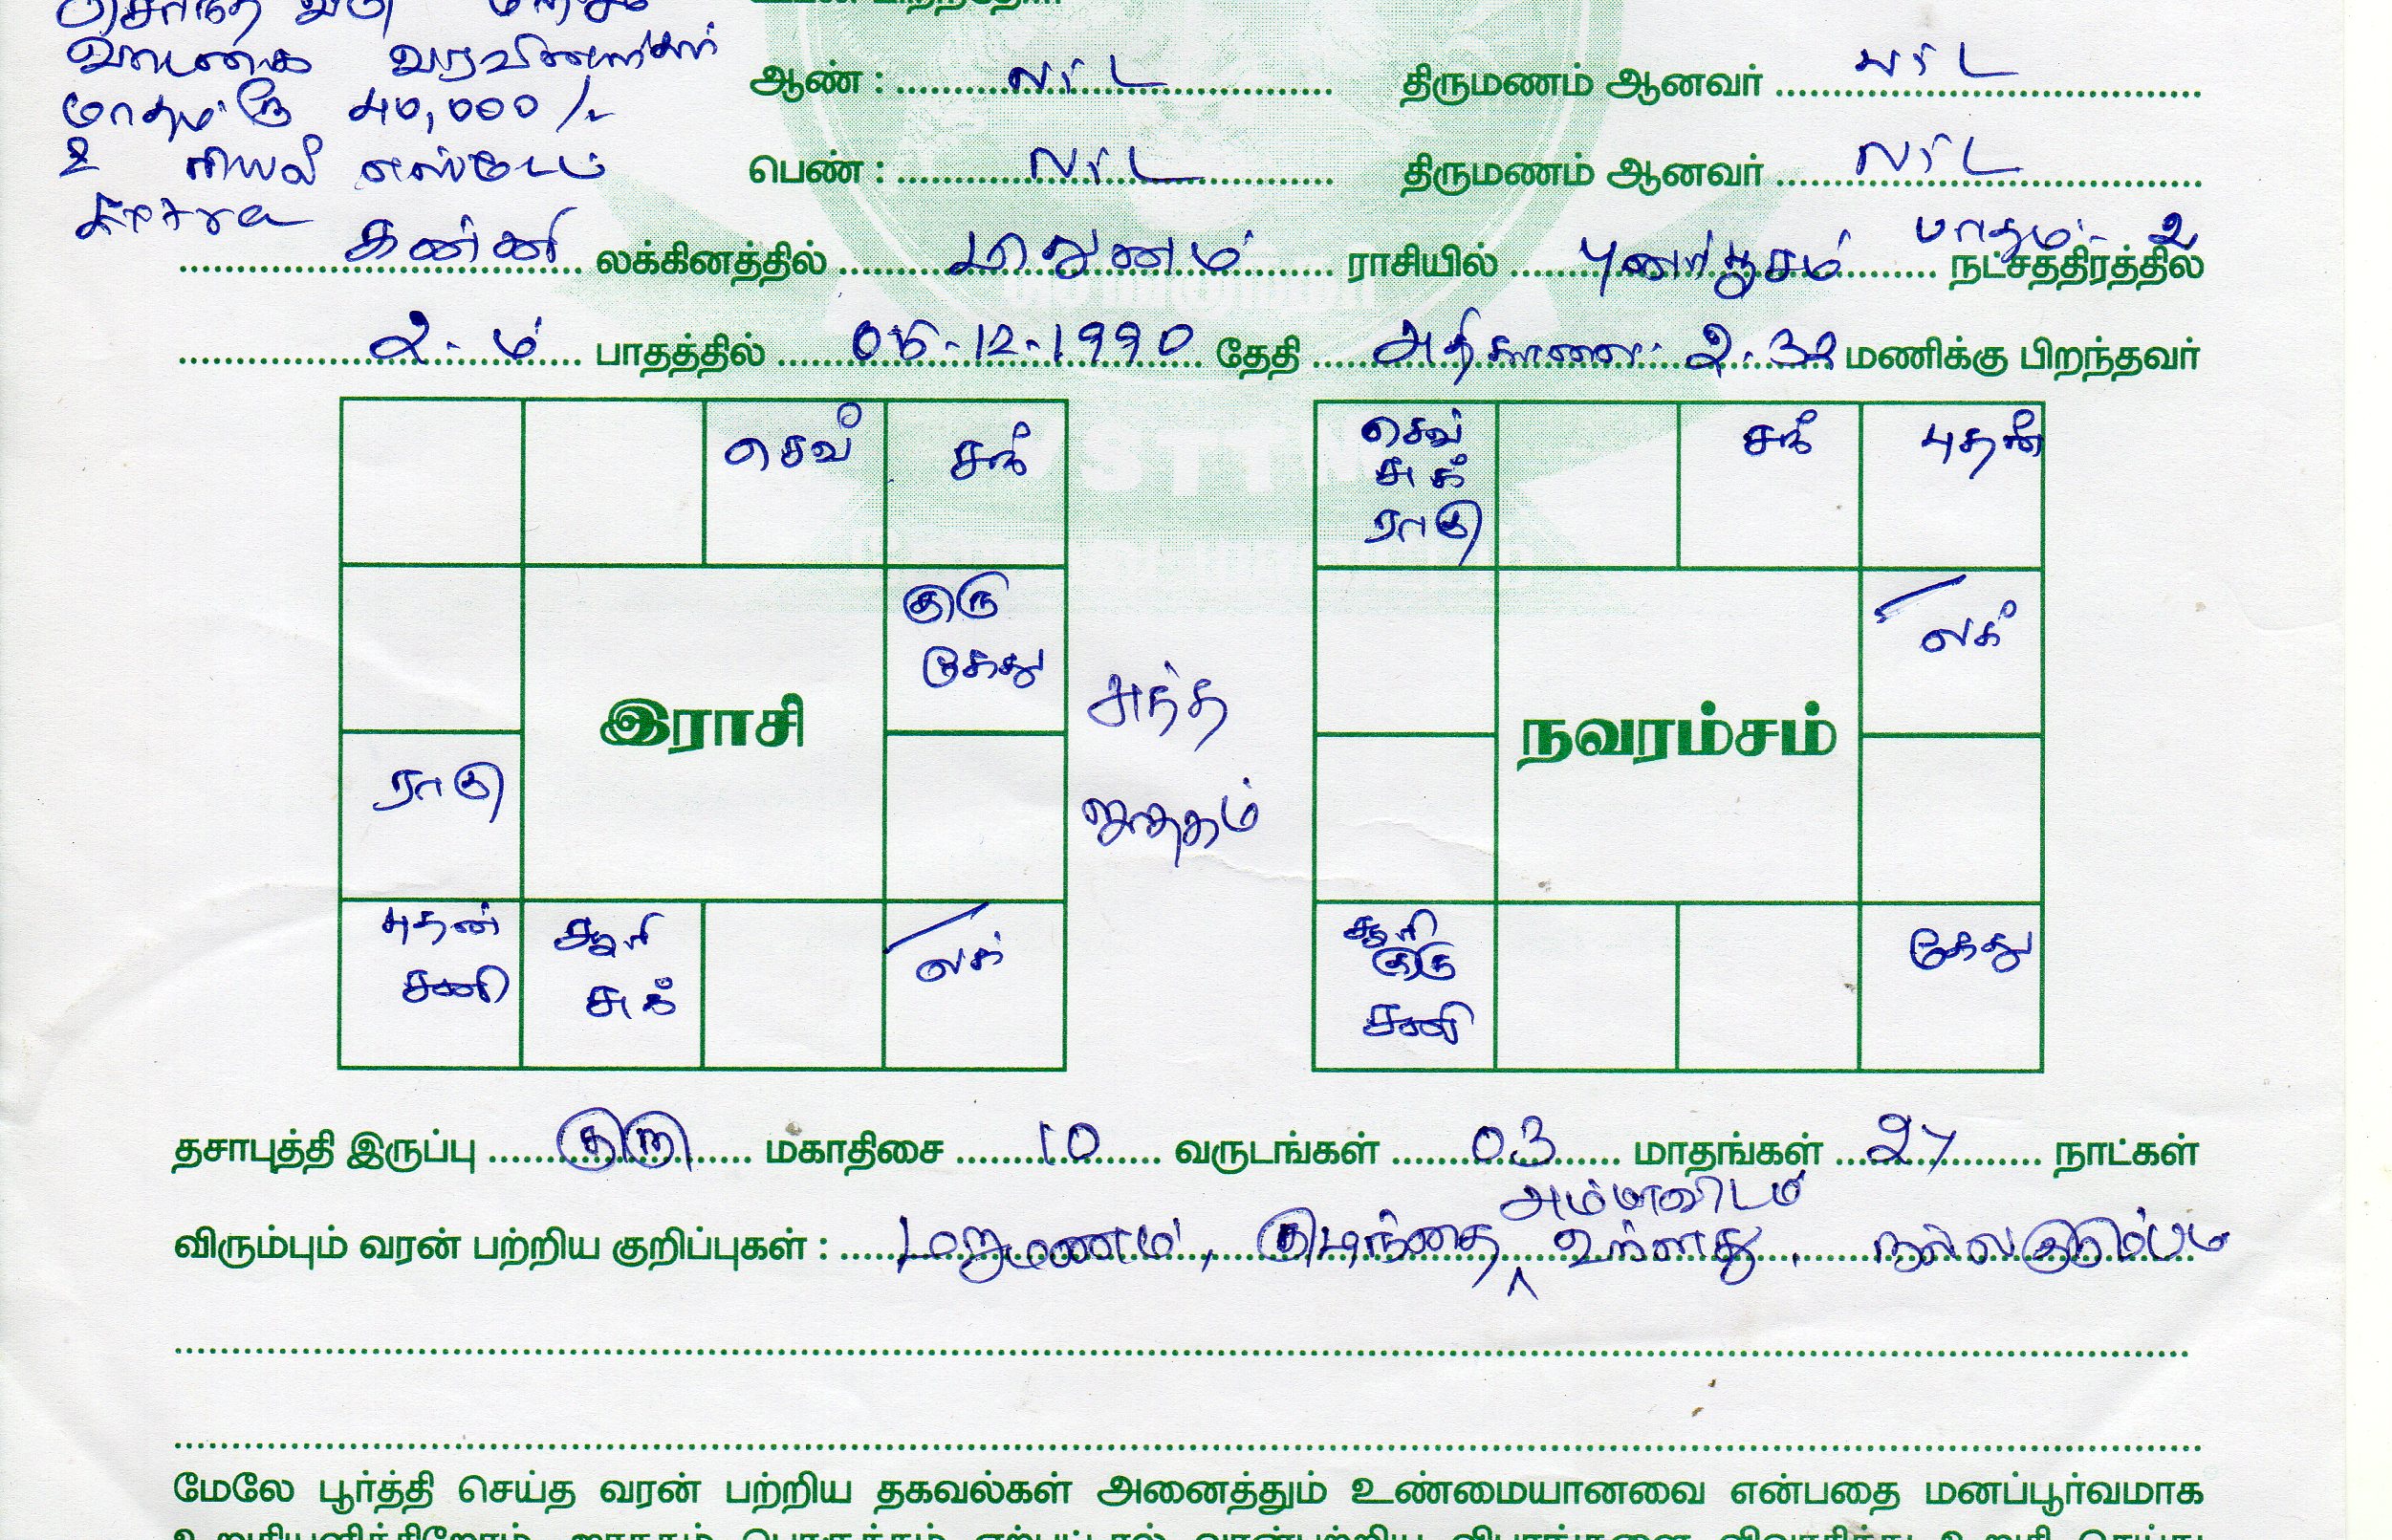 சொந்த வீடு
வாடகை வரவினங்கள்
மாதம் ரூ 40,000/-
& ரியல் எஸ்டேட்
உடன் பிறந்தோர்
ஆண் : ........ திருமணம் ஆனவர் ........
பெண் : ........ திருமணம் ஆனவர் ........
கன்னி லக்கினத்தில் மிதுனம் ராசியில் புனர்பூசம் பாதம் - 2 நட்சத்திரத்தில்
2-ம் பாதத்தில் 05-12-1990 தேதி அதிகாலை 2.32 மணிக்கு பிறந்தவர்
செவ் சந்
குரு கேது
இராசி
ராகு
புதன் சனி சூரி சுக் லக்
அந்த
ஜாதகம்
செவ் சுக் ராகு சந் புதன்
லக்
நவரம்சம்
சூரி குரு சனி கேது
தசாபுத்தி இருப்பு குரு மகாதிசை 10 வருடங்கள் 03 மாதங்கள் 27 நாட்கள்
விரும்பும் வரன் பற்றிய குறிப்புகள் : மறுமணம், குழந்தை அம்மாவிடம் உள்ளது. நல்ல குடும்பம்
மேலே பூர்த்தி செய்த வரன் பற்றிய தகவல்கள் அனைத்தும் உண்மையானவை என்பதை மனப்பூர்வமாக